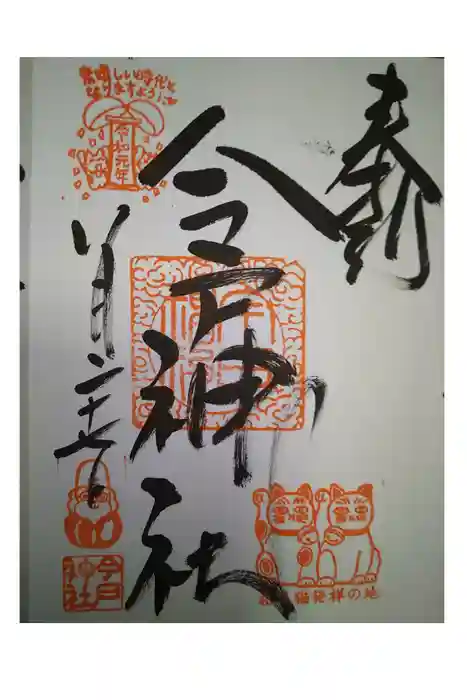 奉拝
今戸神社
素晴しい時代と
なりますように
令和元年
八月二十七日
今戸
神社
招き猫発祥の地